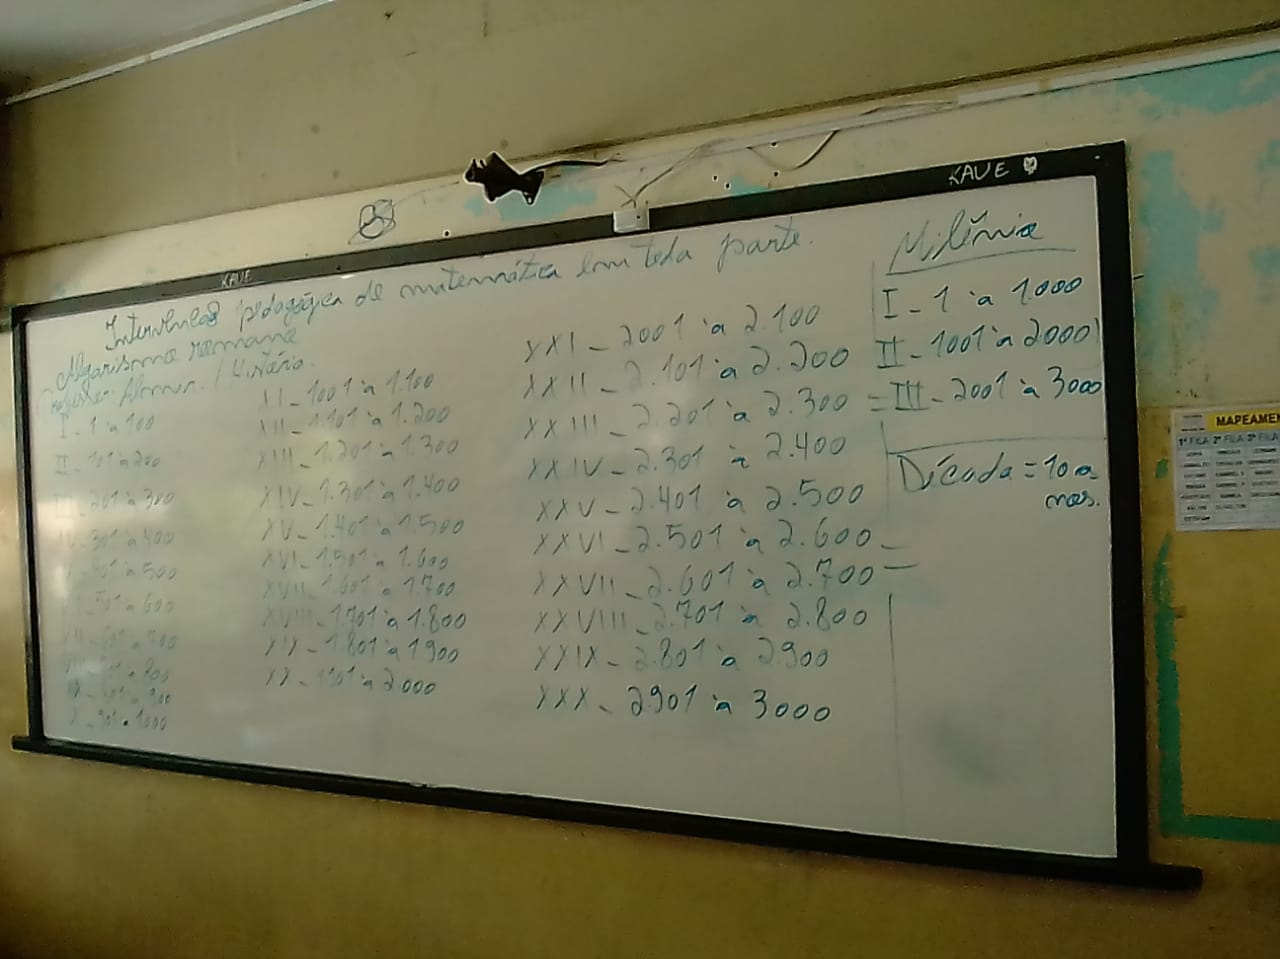 KAUE
KAVE
Intervenção pedagógica de matemática em toda parte.
Algarismo romano
/ História.
I - 1 à 100
II - 101 à 200
III - 201 à 300
IV - 301 à 400
V - 401 à 500
VI - 501 à 600
IX - 801 à 900
X - 901 à 1000
XI - 1001 à 1.100
XII - 1.101 à 1.200
XIII - 1.201 à 1.300
XIV - 1.301 à 1.400
XV - 1.401 à 1.500
XVI - 1.501 à 1.600
XVII - 1.601 à 1.700
XVIII - 1.701 à 1.800
XIX - 1.801 à 1900
XX - 1901 à 2.000
XXI - 2001 à 2.100
XXII - 2.101 à 2.200
XXIII - 2.201 à 2.300
XXIV - 2.301 à 2.400
XXV - 2.401 à 2.500
XXVI - 2.501 à 2.600
XXVII - 2.601 à 2.700
XXVIII - 2.701 à 2.800
XXIX - 2.801 à 2.900
XXX - 2.901 à 3.000
Milênio
I - 1 à 1.000
II - 1001 à 2.000
III - 2001 à 3000
Década = 10 a
nos.
MAPEAMEN
1ª FILA 2ª FILA 3ª FILA